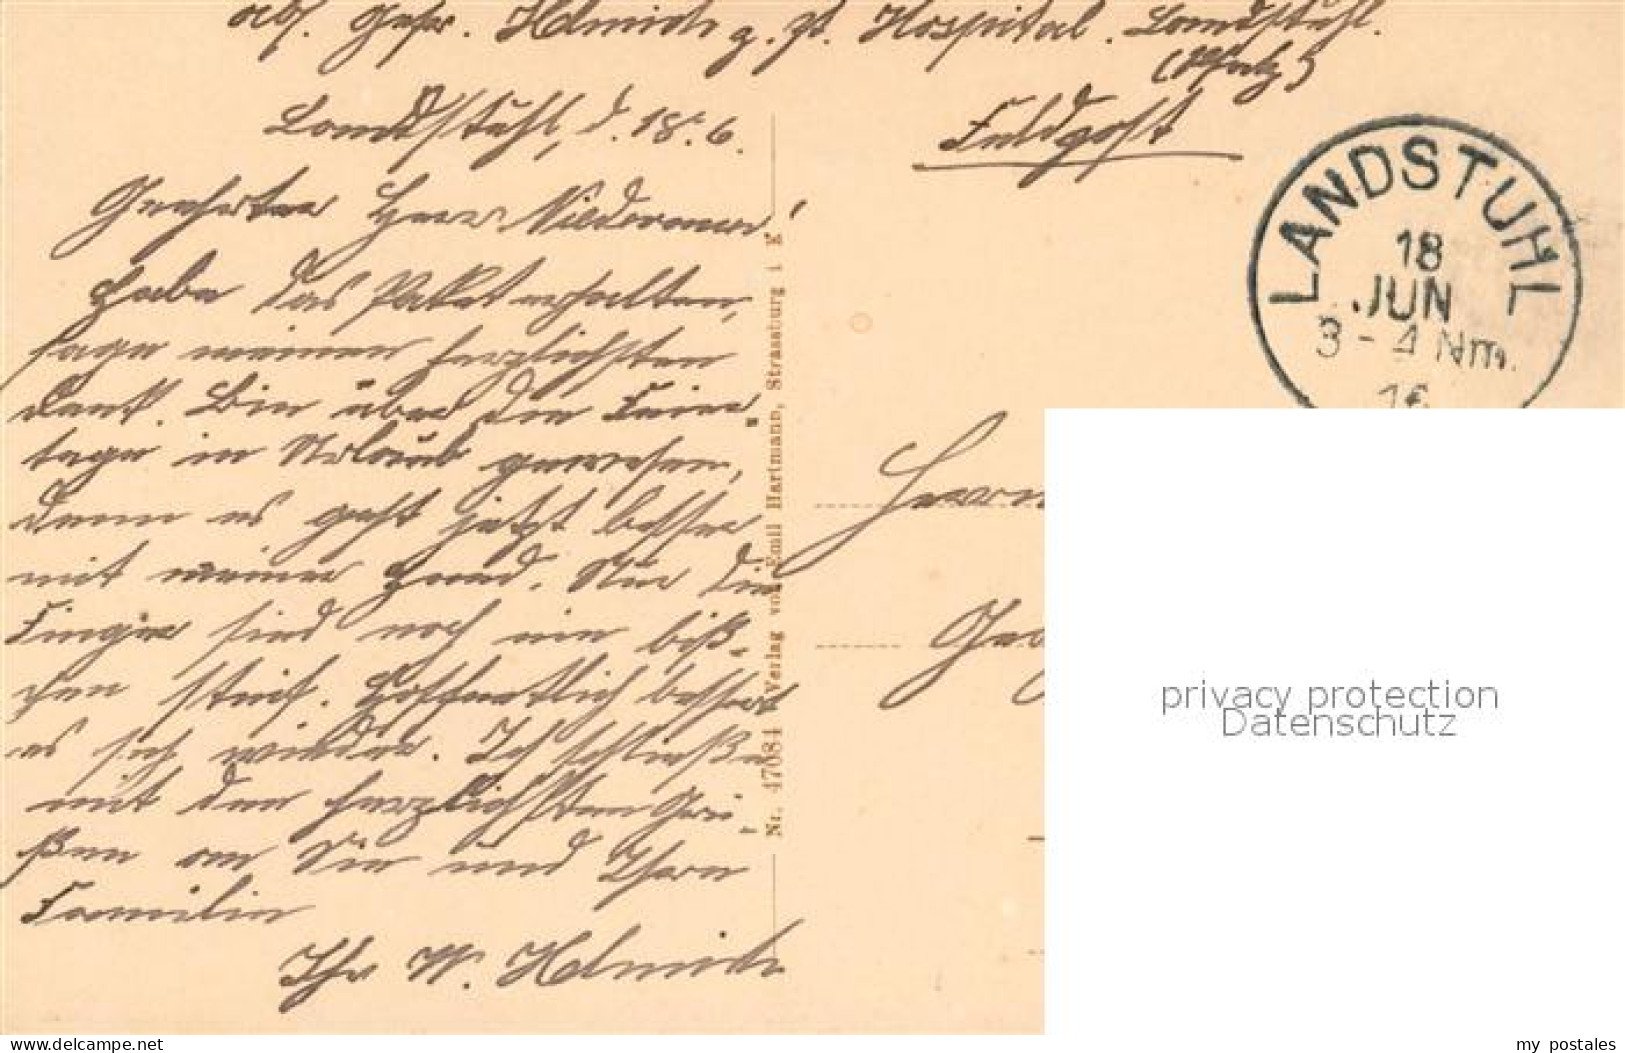 Abs. Gefr. Helmich z. Zt. Hospital. Landstuhl.
(Pfalz)
Feldpost
Landstuhl, d. 18. 6.
Geehrter Herr
Habe das Paket erhalten,
sage meinen herzlichsten
Dank. Bin über die Feier-
tage in Urlaub gewesen,
denn es geht jetzt besser
mit meiner Hand. Nur die
Finger sind noch ein biß-
chen steif. Hoffentlich bessert
es sich wieder. Ich schließe
mit den herzlichsten Grü-
ßen an Sie und Ihre
Familie
Ihr W. Helmich
Nr. 47084 Verlag von Emil Hartmann, Strassburg i. E
LANDSTUHL
18
JUN
3-4 Nm.
16
Herrn
privacy protection
Datenschutz
www.delcampe.net
my_postales